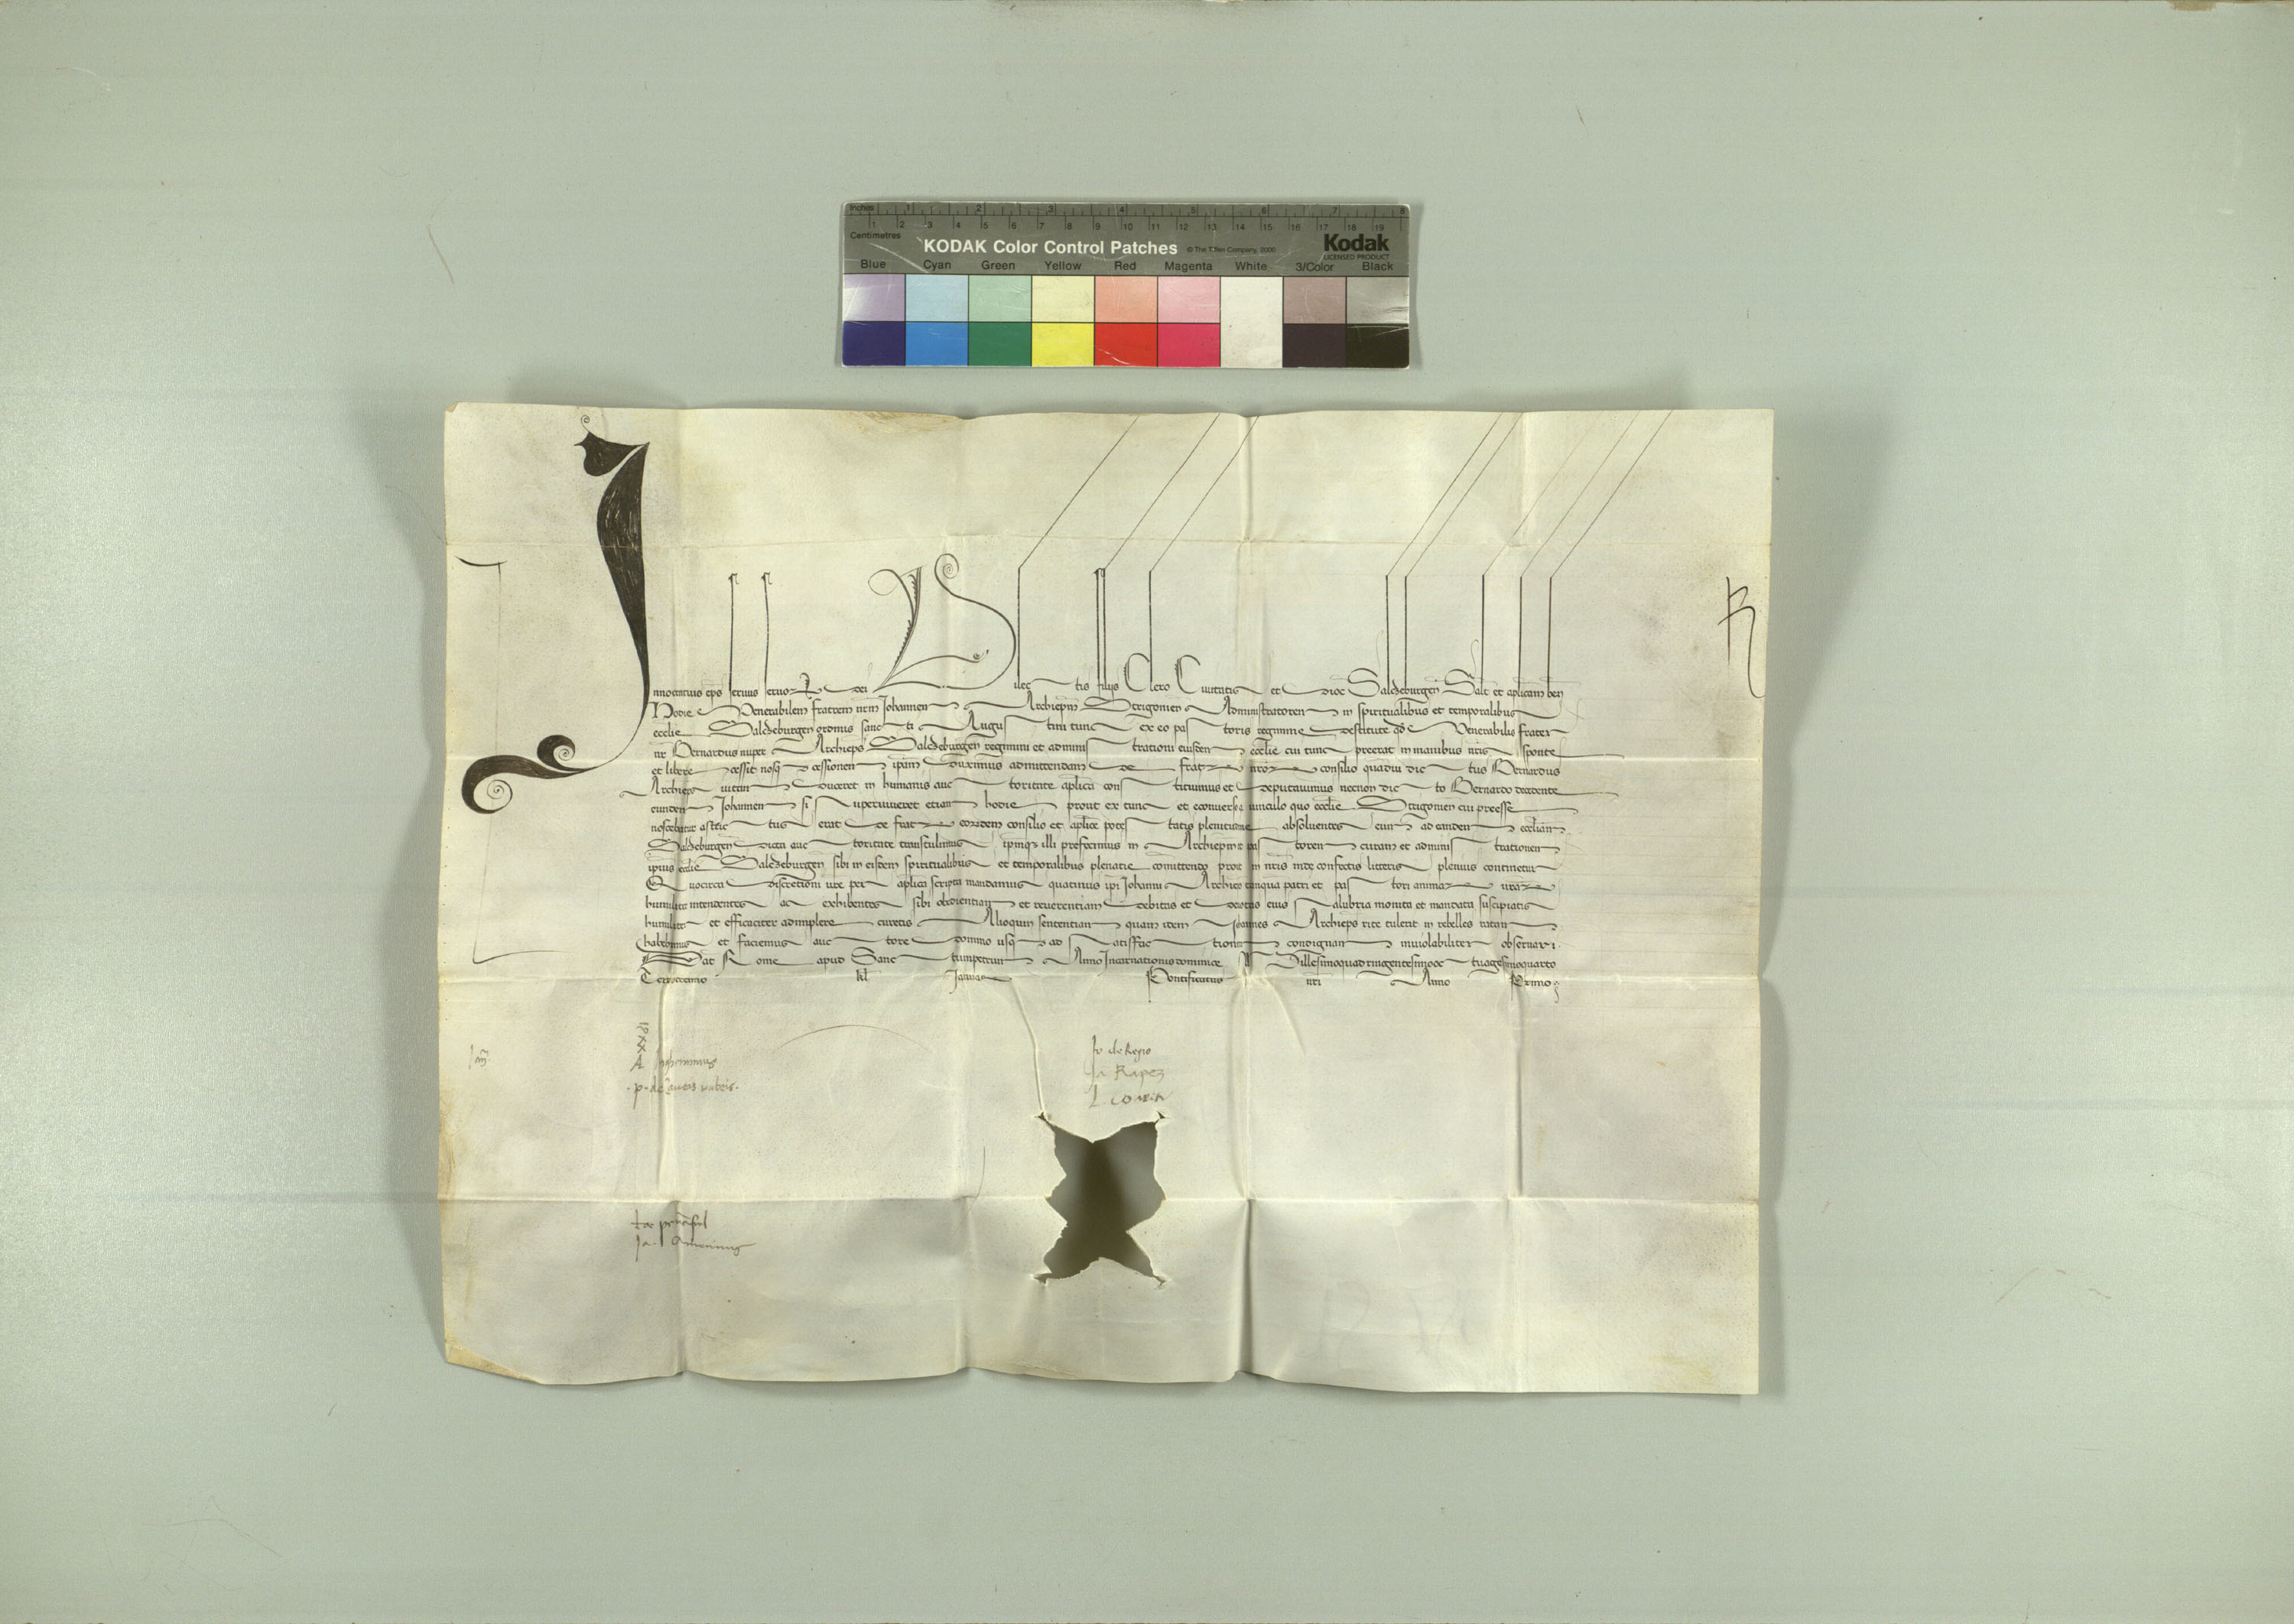 Inches 1 2 3 4 5 6 7 8
1 2 3 4 5 6 7 8 9 10 11 12 13 14 15 16 17 18 19
Centimetres
KODAK Color Control Patches © The Tiffen Company, 2000 Kodak
LICENSED PRODUCT
Blue Cyan Green Yellow Red Magenta White 3/Color Black
R
Innocentius ep̄s servus servoꝝ dei Dilectis filijs Clero Civitatis et Dioc̄ Saltzeburgen̄ Salt̄ et ap̄licam ben̄
Hodie Venerabilem fratrem nr̄m Johannem Archiep̄m Strigonien̄ Administratorem in spiritualibus et temporalibus
eccl̄ie Saltzeburgen̄ ordinis sancti Augustini tunc ex eo pastoris regimine destitute qđ Venerabilis frater
nr̄ Bernardus nuper Archiep̄s Saltzeburgen̄ regimini et administrationi eiusdem eccl̄ie cui tunc preerat in manibus nr̄is sponte
et libere cessit nosq̄ cessionem ip̄am duximus admittendam de fratꝝ nr̄oꝝ consilio quadiu dictus Bernardus
Archiep̄s vitam duceret in humanis auctoritate ap̄lica constituimus et deputavimus necnon dicto Bernardo decedente
eundem Johannem si supervivēret etiam hodie prout ex tunc et econverso a vinculo quo eccl̄ie Strigonien̄ cui preesse
noscebatur astrictus erat de fratꝝ eorūdem consilio et ap̄lice potestatis plenitudine absolventes eum ad eandem eccl̄iam
Saltzeburgen̄ dicta auctoritate transtulimus ip̄mq̄ illi prefecimus in Archiep̄m et pastorem curam et administrationem
ip̄ius eccl̄ie Saltzeburgen̄ sibi in eisdem spiritualibus et temporalibus plenarie committendo prout in nr̄is inde confectis litteris plenius continetur
Quocirca discretioni vr̄e per ap̄lica scripta mandamus quatinus ip̄i Johanni Archiep̄o tanquā patri et pastori animaꝝ vr̄aꝝ
humiliter intendentes ac exhibentes sibi obedientiam et reverentiam debitas et devotas eius salubria monita et mandata suscipiatis
humiliter et efficaciter adimplere curetis Alioquin sententiam quam idem Joannes Archiep̄s rite tulerit in rebelles ratam
habebimus et faciemus auctore domino usq̄ ad satisfactionem condignam inviolabiliter observari
Dat̄ Rome apud Sanctumpetrum Anno Incarnationis dominice Millesimoquadringentesimooctuagesimoquarto
Terciodecimo kl̄ Januar̄ Pontificatus nr̄i Anno Primo
Jo de Regio
Ja Rapez